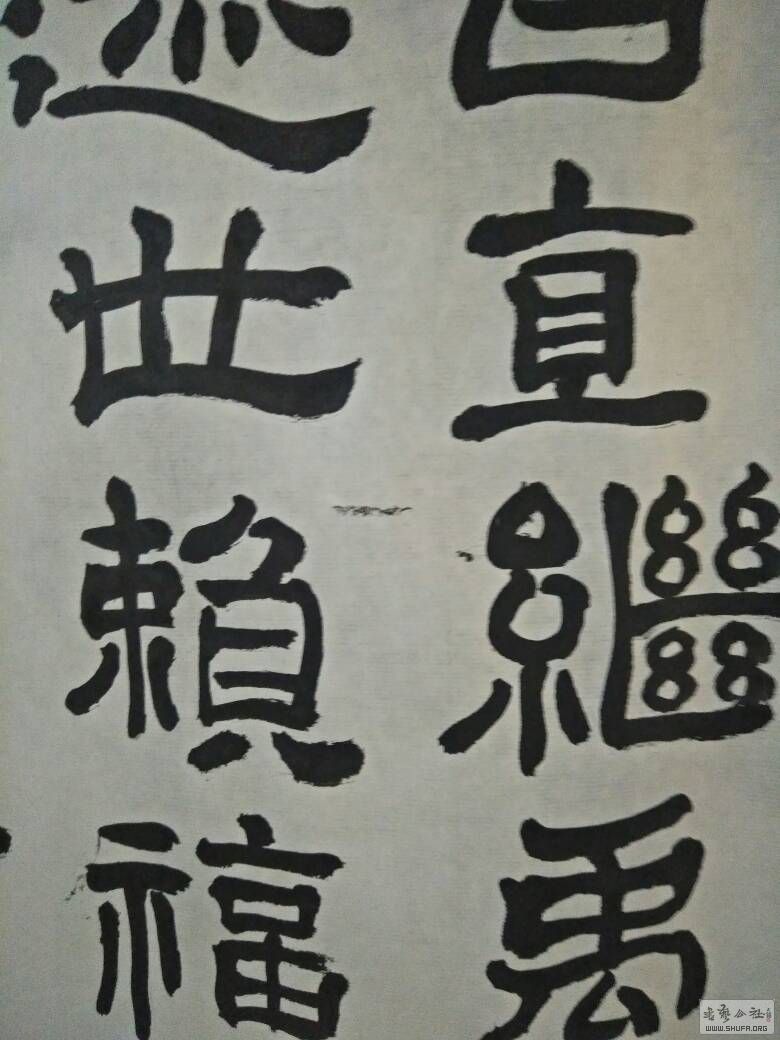 直繼禹
迹世賴福
书艺公社
WWW.SHUFA.ORG